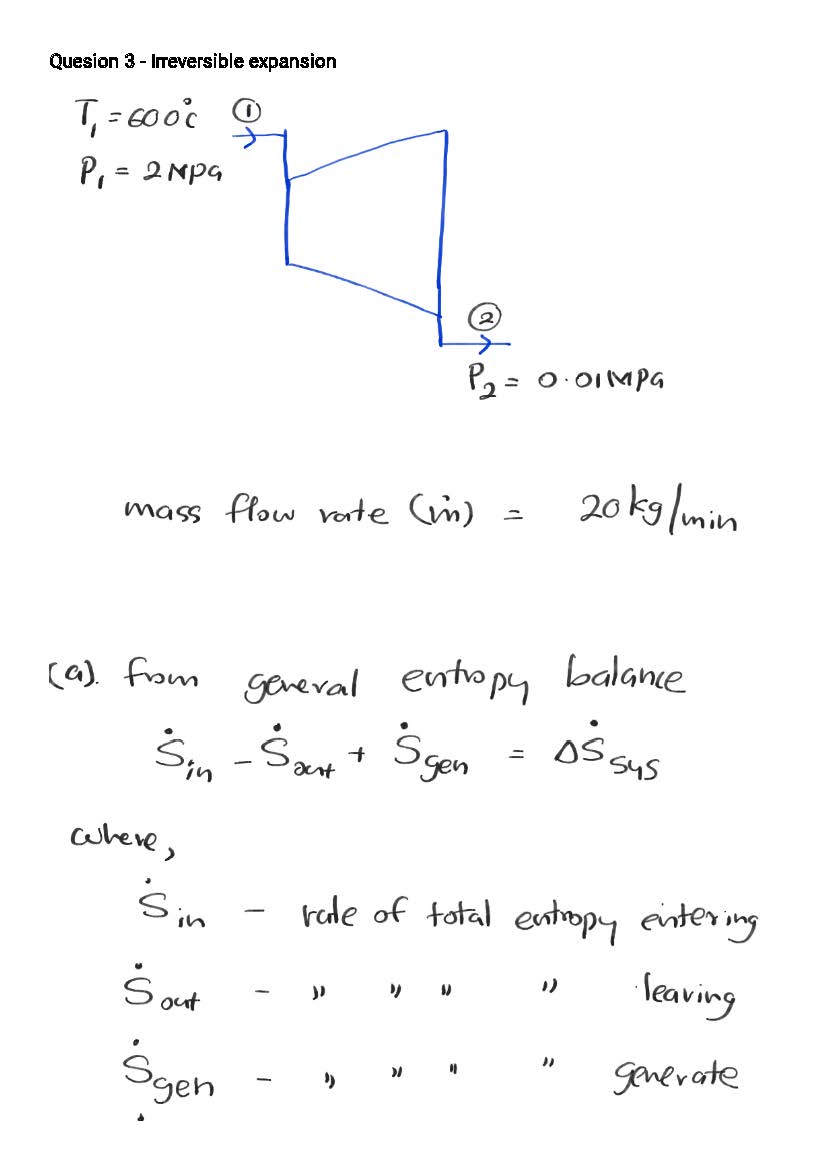 Quesion 3 - Irreversible expansion
T₁ = 600°C ①
P₁ = 2 MPa
②
P₂ = 0.01 MPa
mass flow rate (ṁ) = 20 kg/min
(a). from general entropy balance
Ṡin - Ṡout + Ṡgen = ΔṠsys
where,
Ṡin - rate of total entropy entering
Ṡout - " " " " leaving
Ṡgen - " " " " generate